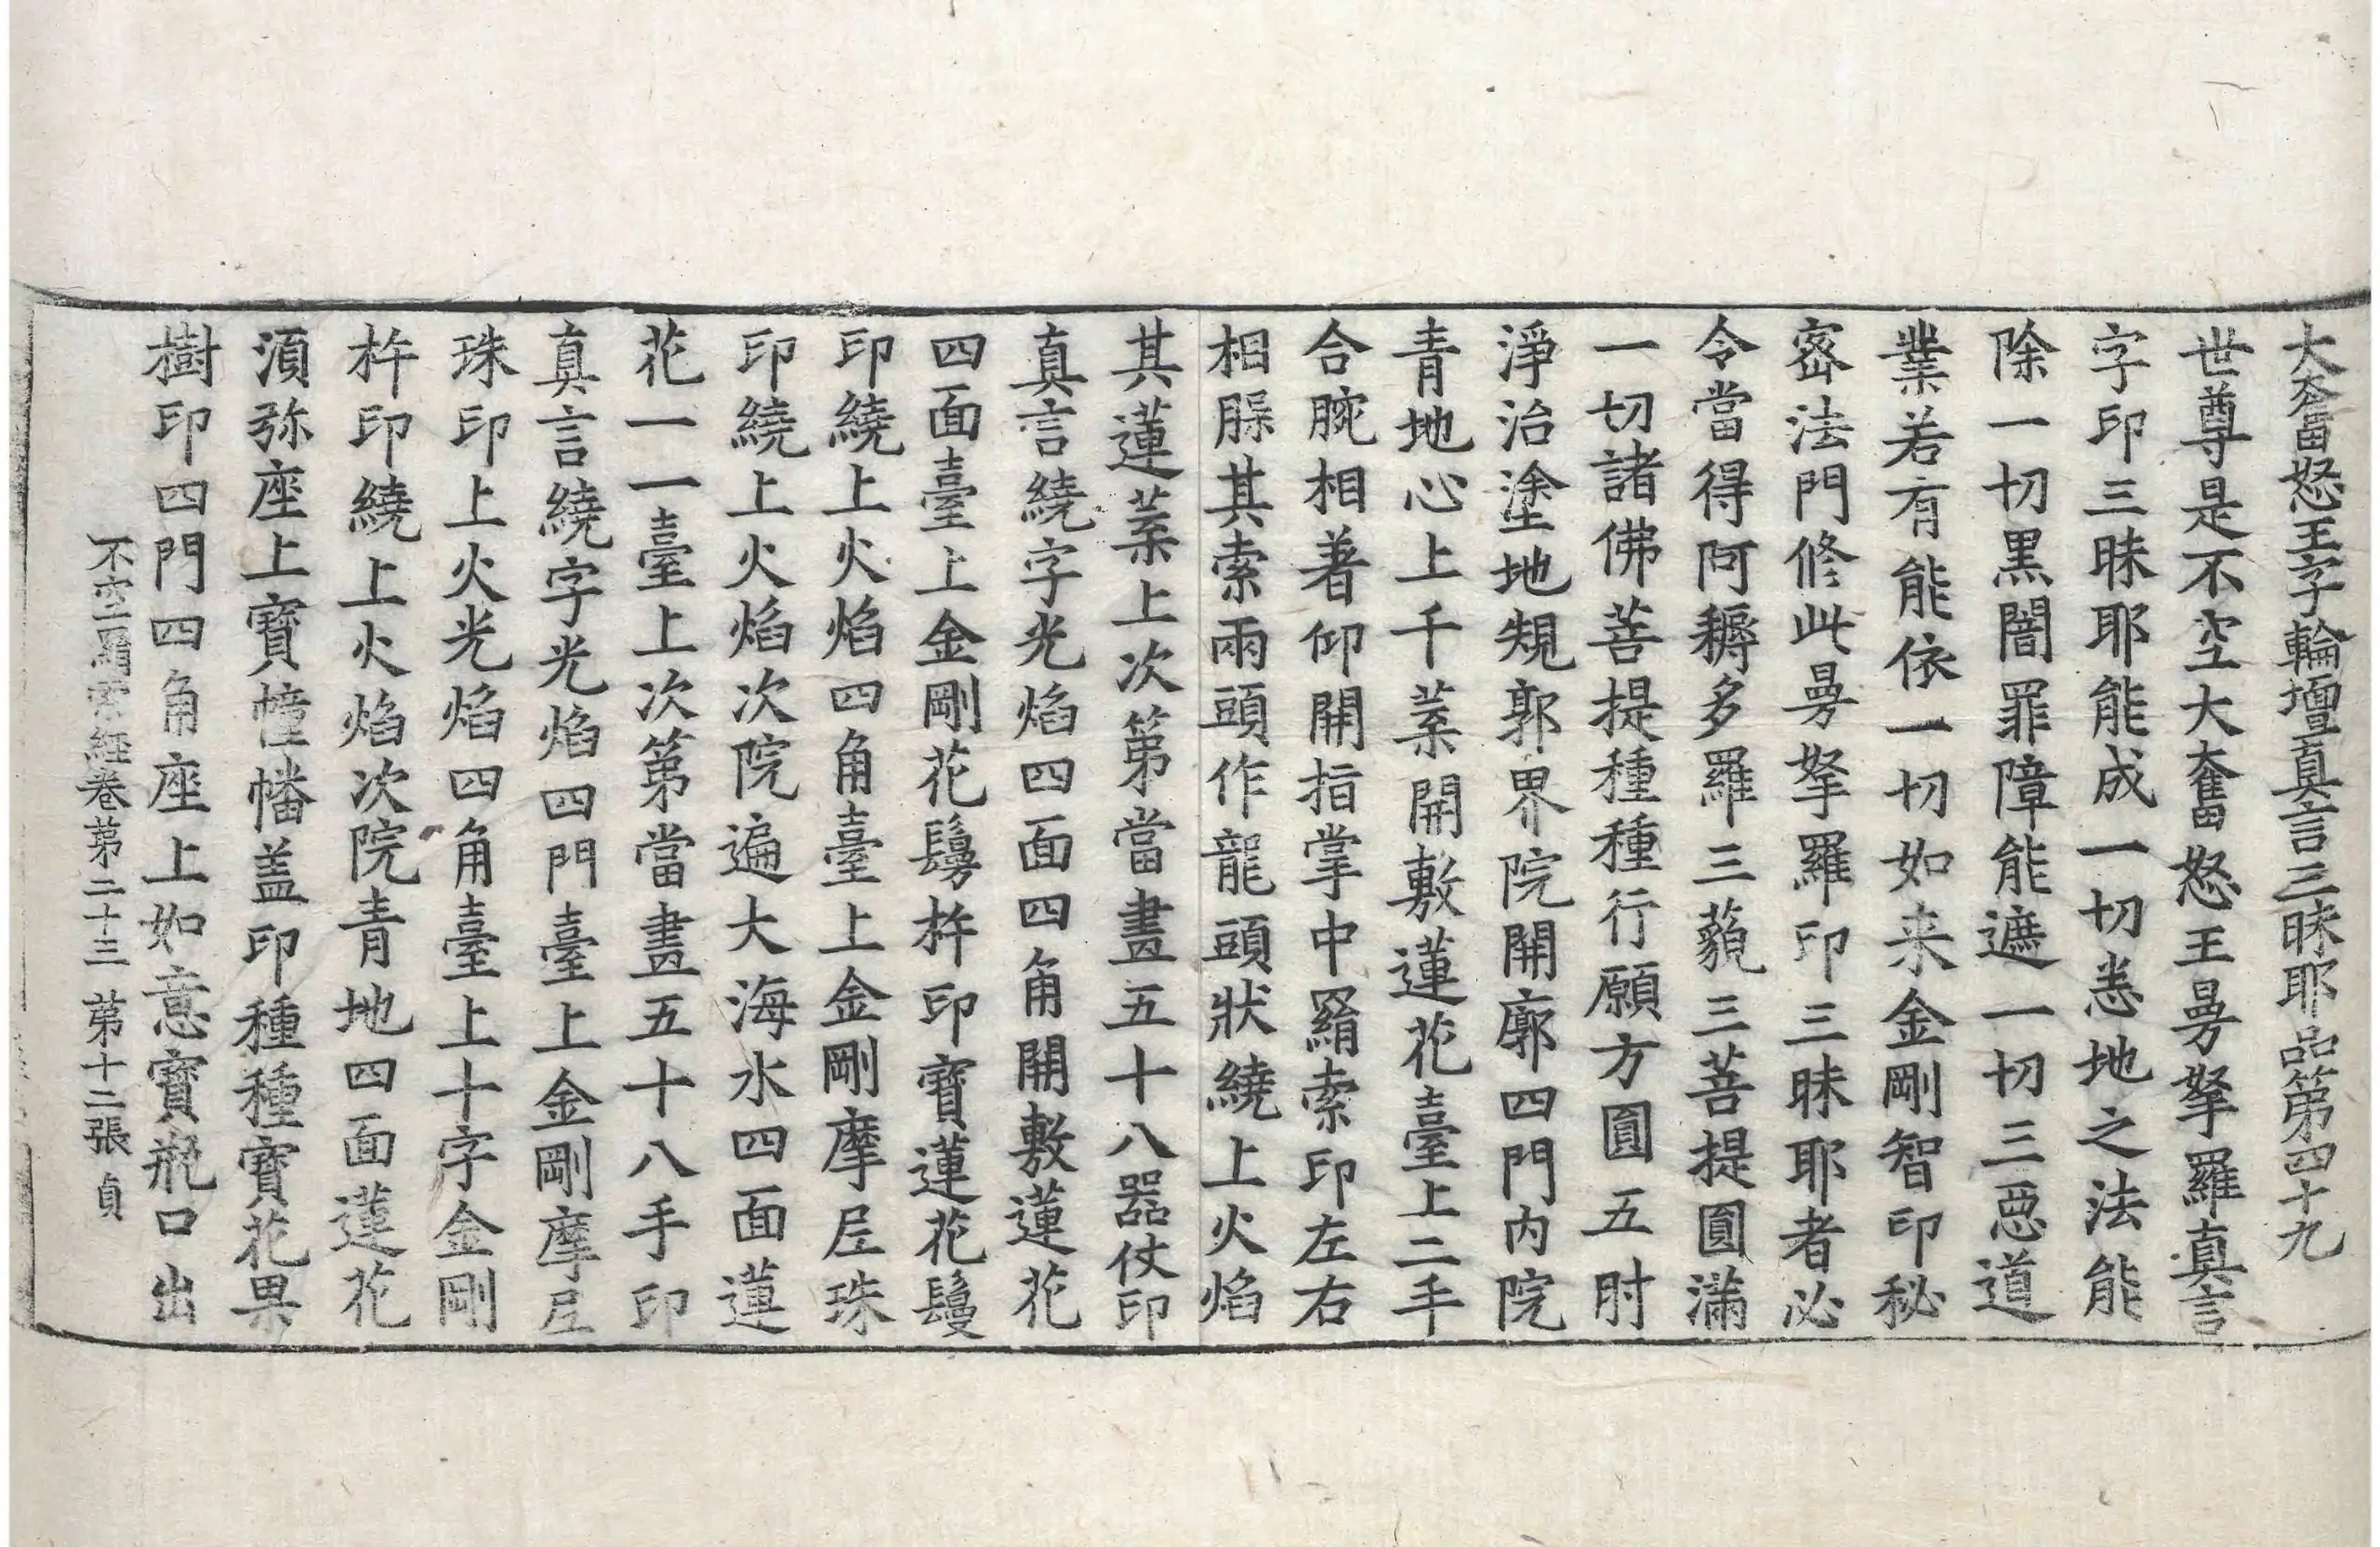 大奮怒王字輪壇真言三昧耶品第四十九
世尊是不空大奮怒王曼拏羅真言
字印三昧耶能成一切悉地之法能
除一切黑闇罪障能遮一切三惡道
業若有能依一切如来金剛智印秘
密法門修此曼拏羅印三昧耶者必
令當得阿耨多羅三藐三菩提圓滿
一切諸佛菩提種種行願方圓五肘
淨治塗地規郭界院開廓四門内院
青地心上千葉開敷蓮花臺上二手
合腕相著仰開指掌中羂索印左右
相躶其索兩頭作龍頭狀繞上火焰
其蓮葉上次第當畫五十八器仗印
真言繞字光焰四面四角開敷蓮花
四面臺上金剛花鬘杵印寶蓮花鬘
印繞上火焰四角臺上金剛摩尼珠
印繞上火焰次院遍大海水四面蓮
花一一臺上次第當畫五十八手印
真言繞字光焰四門臺上金剛摩尼
珠印上火光焰四角臺上十字金剛
杵印繞上火焰次院青地四面蓮花
須弥座上寶幢幡盖印種種寶花果
樹印四門四角座上如意寶瓶口出
不空羂索經卷第二十三 第十二張 貞